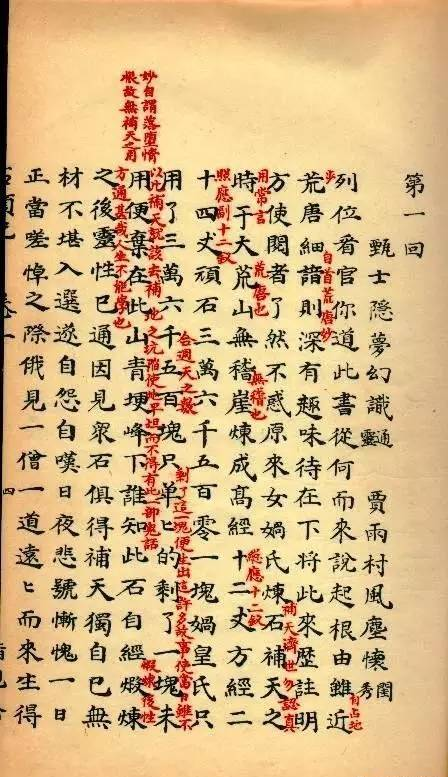 第一回
甄士隱夢幻識通靈 賈雨村風塵懷閨秀
列位看官你道此書從何而來說起根由雖近
自占地步
荒唐細諳則深有趣味待在下將此來歷註明
自首荒唐妙
方使閱者了然不惑原來女媧氏煉石補天之
補天濟世勿認真用常言
時于大荒山無稽崖煉成高經十二丈方經二
荒唐也
無稽也
總應十二釵
照應副十二釵
十四丈頑石三萬六千五百零一塊媧皇氏只
合週天之數
用了三萬六千五百塊只單匕的剩了一塊未
剩了這一塊便生出這許多故事使當日雖不以此補天就該去補地之坑陷使地平坦而不得有此一部鬼話
用便棄在此山青埂峰下誰知此石自經煅煉
妙自謂落墮情根故無補天之用
之後靈性已通因見衆石俱得補天獨自己無
煅煉後性方通甚哉人生不能學也
材不堪入選遂自怨自嘆日夜悲號慚愧一日
正當嗟悼之際俄見一僧一道遠匕而來生得
四